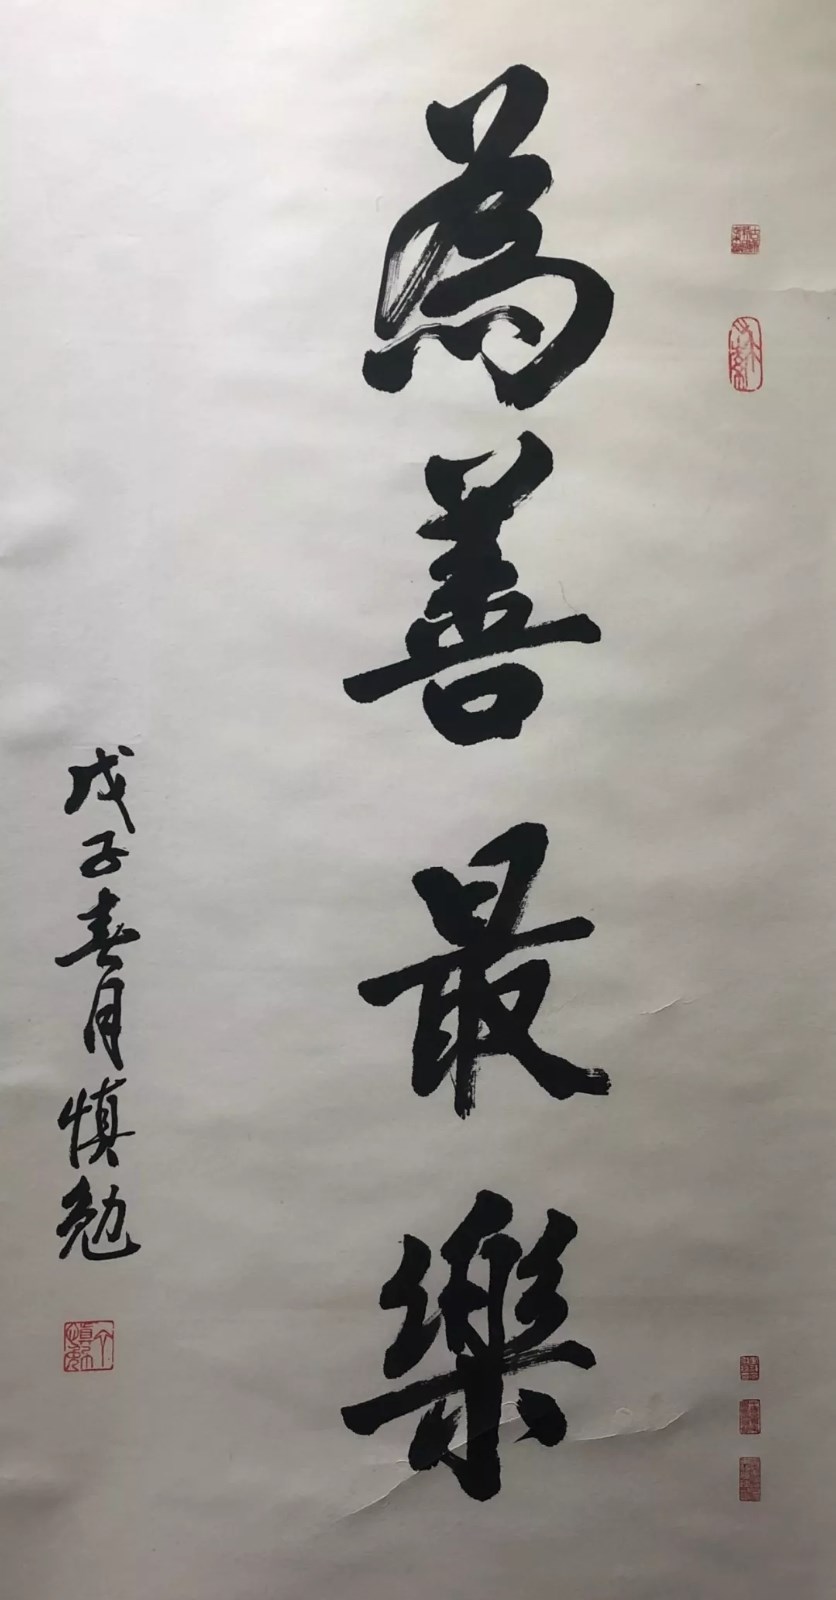 為善最樂
戊子春月慎勉